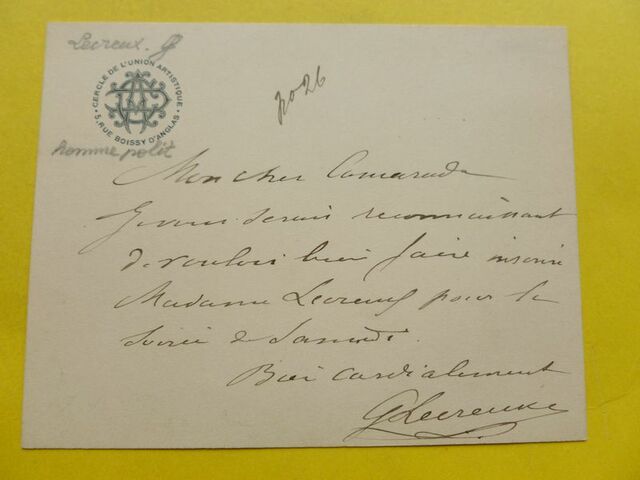 Lecreux. G
CERCLE DE L'UNION ARTISTIQUE
5, RUE BOISSY D'ANGLAS
homme polit
no 26
Mon cher Camarade
Je vous serais reconnaissant
de vouloir bien faire inscrire
Madame Lecreux pour la
soirée de Samedi.
Bien cordialement
GLecreux